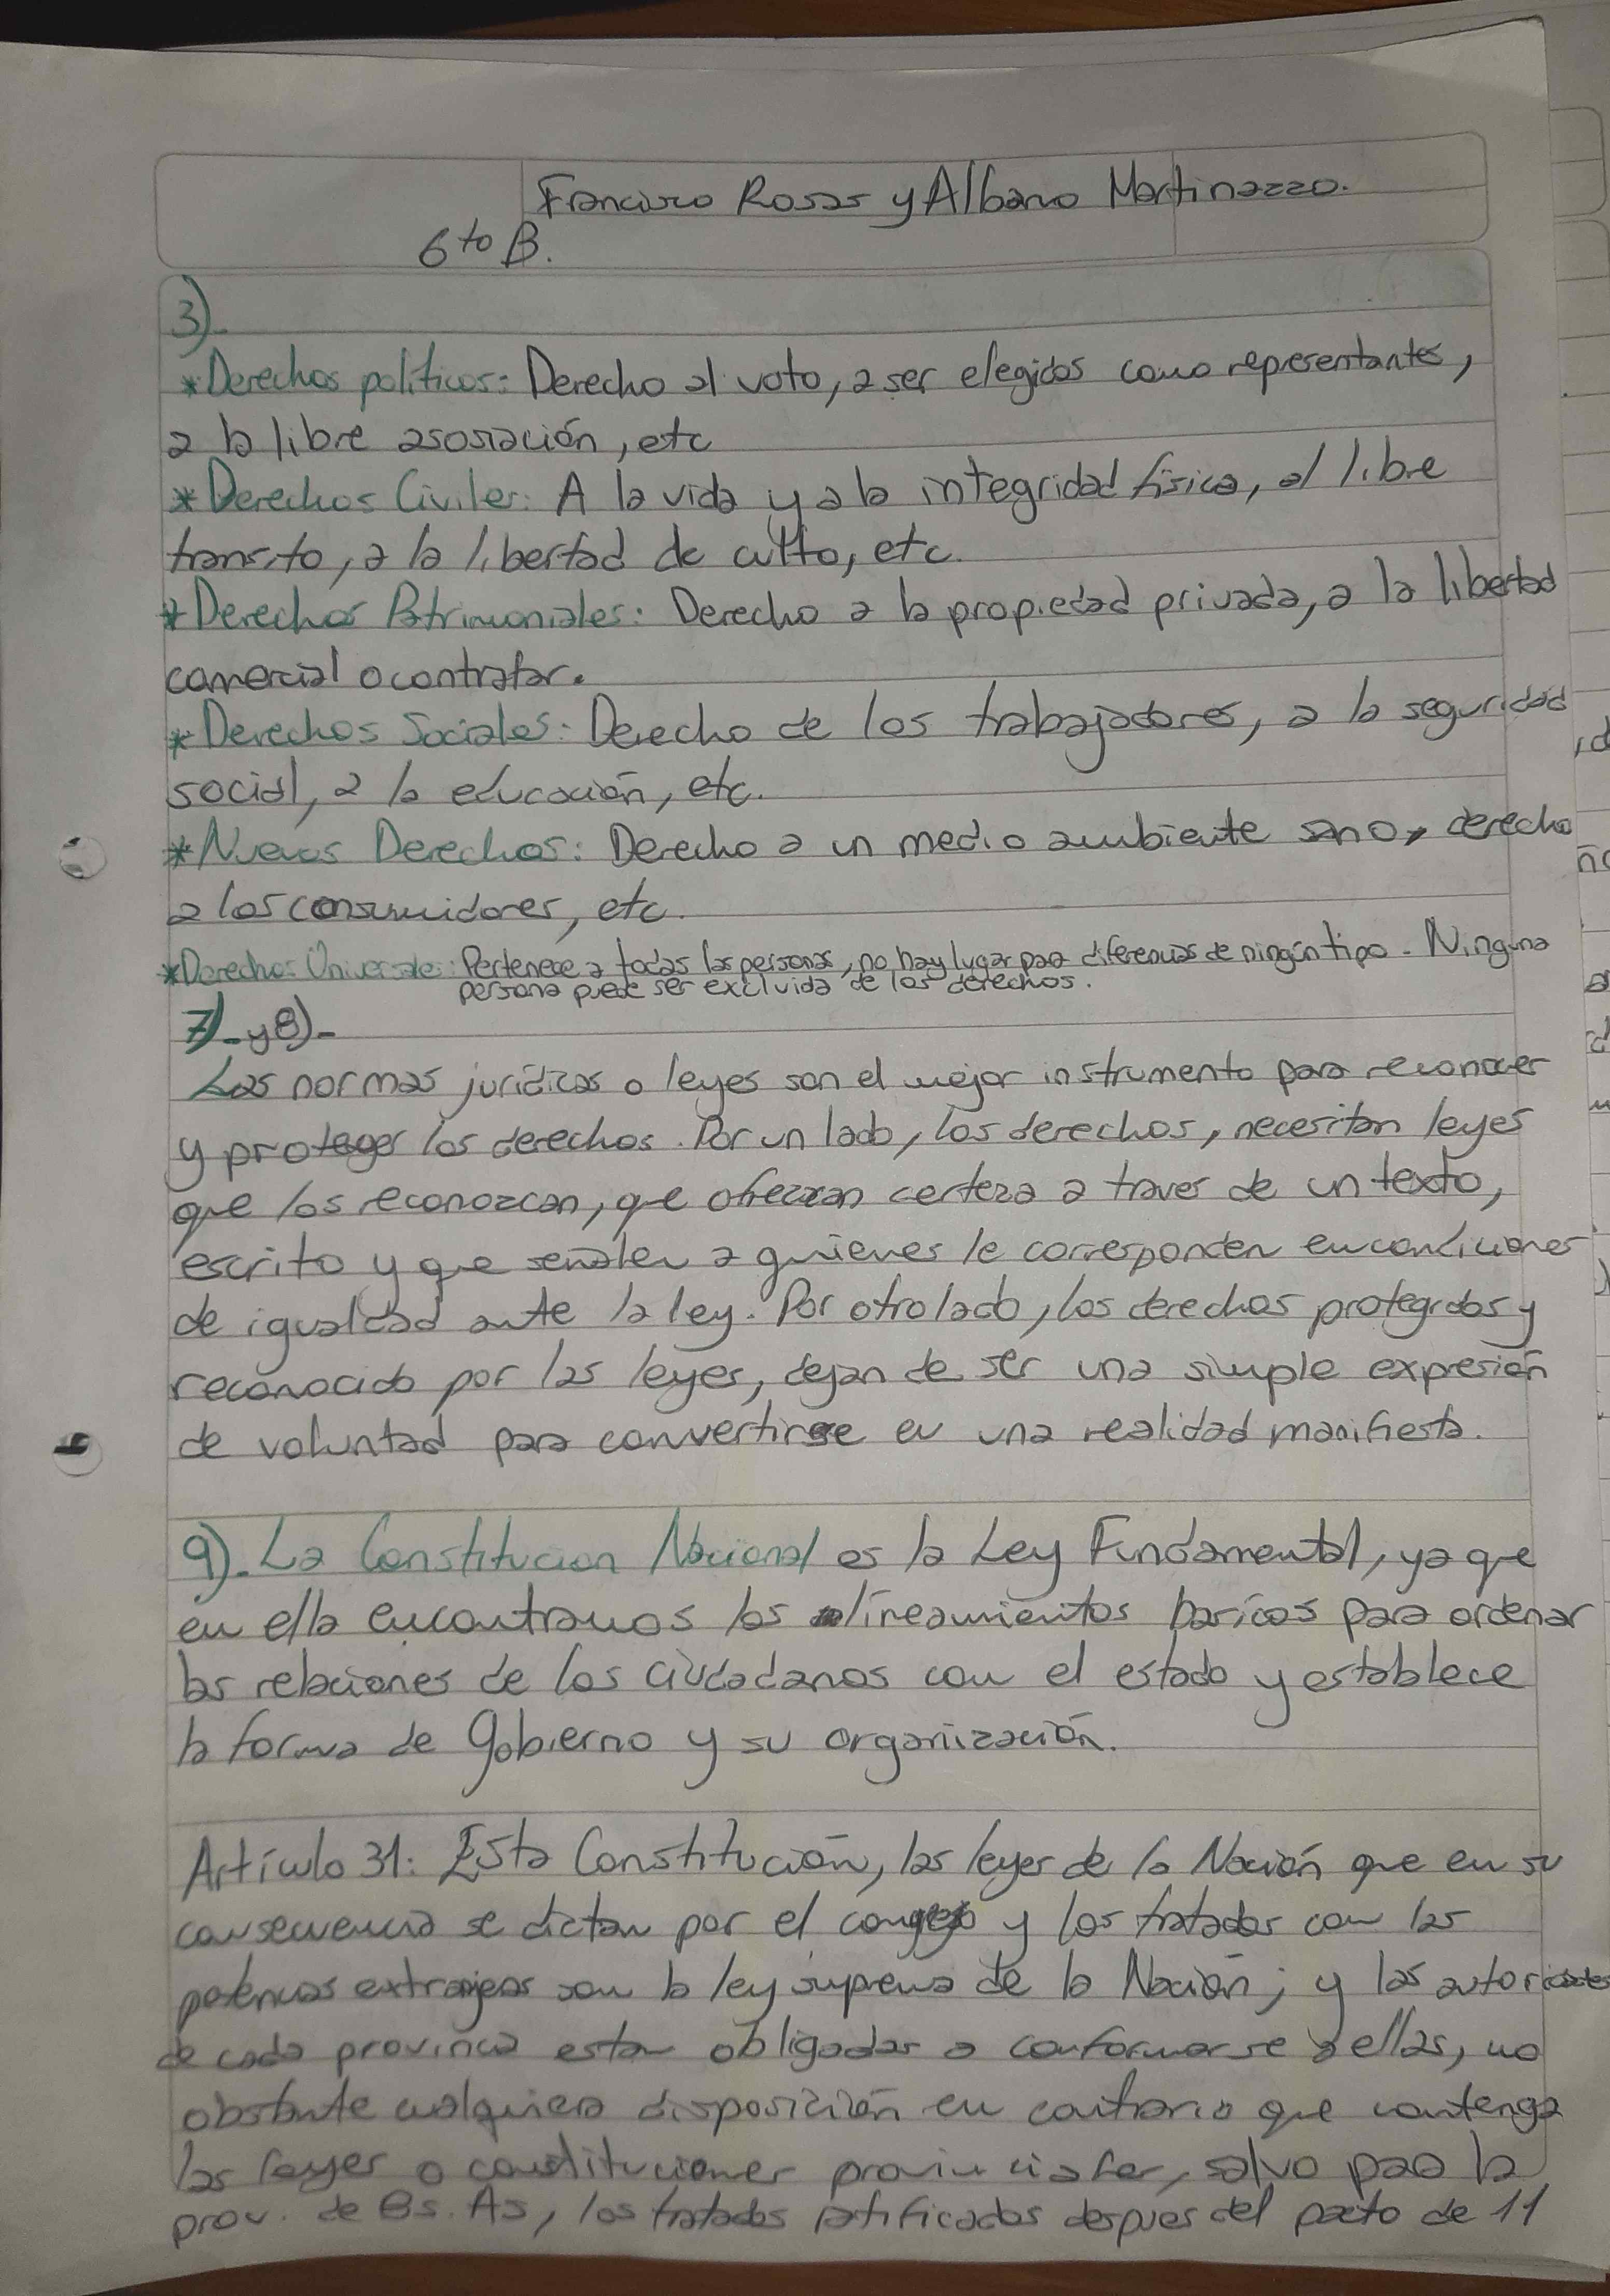 Francisco Rosas y Albano Martinazzo.
6to B.
3)-
*Derechos políticos: Derecho al voto, a ser elegidos como representantes,
a la libre asosiación, etc
*Derechos Civiles: A la vida y a la integridad física, al libre
transito, a la libertad de culto, etc.
*Derechos Patrimoniales: Derecho a la propiedad privada, a la libertad
comercial o contratar.
*Derechos Sociales: Derecho de los trabajadores, a la seguridad
social, a la educación, etc.
*Nuevos Derechos: Derecho a un medio ambiente sano, derecho
a los consumidores, etc.
*Derechos Universales: Pertenece a todas las personas, no hay lugar para diferencias de ningún tipo. Ninguna
persona puede ser excluida de los derechos.
7)- y 8)-
Las normas jurídicas o leyes son el mejor instrumento para reconocer
y proteger los derechos. Por un lado, los derechos, necesitan leyes
que los reconozcan, que ofrezcan certeza a traves de un texto,
escrito y que señalen a quienes le corresponden en condiciones
de igualdad ante la ley. Por otro lado, los derechos protegidos y
reconocido por las leyes, dejan de ser una simple expresión
de voluntad para convertirse en una realidad manifiesta.
9)- La Constitucion Nacional es la Ley Fundamental, ya que
en ella encontramos los lineamientos basicos para ordenar
las relaciones de los ciudadanos con el estado y establece
la forma de Gobierno y su organización.
Artículo 31: Esta Constitución, las leyes de la Nación que en su
consecuencia se dictan por el congeso y los tratados con las
potencias extranjeras son la ley suprema de la Nación; y las autoridades
de cada provincia estan obligadas a conformarse a ellas, no
obstante cualquiera disposición en contrario que contenga
las leyes o constituciones provinciales, salvo para la
prov. de Bs. As, los tratados ratificados despues del pacto de 11